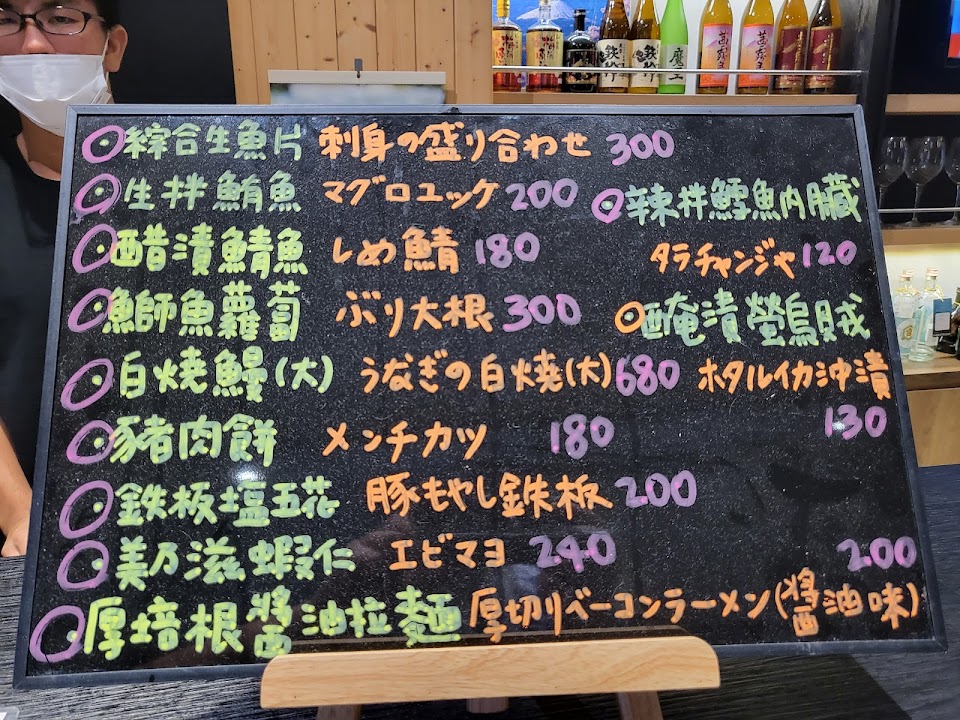 綜合生魚片 刺身の盛り合わせ 300
生拌鮪魚 マグロユッケ 200
辣拌鱈魚内臓
タラチャンジャ 120
醋漬鯖魚 しめ鯖 180
魚師魚蘿蔔 ぶり大根 300
酉奄漬螢烏賊
ホタルイカ沖漬
130
白焼鰻(大) うなぎの白焼(大) 680
豬肉餅 メンチカツ 180
鉄板塩五花 豚もやし鉄板 200
美乃滋蝦仁 エビマヨ 240
200
厚培根醤油拉麺 厚切りベーコンラーメン(醤油味)
鉄
魔王
茜霧島